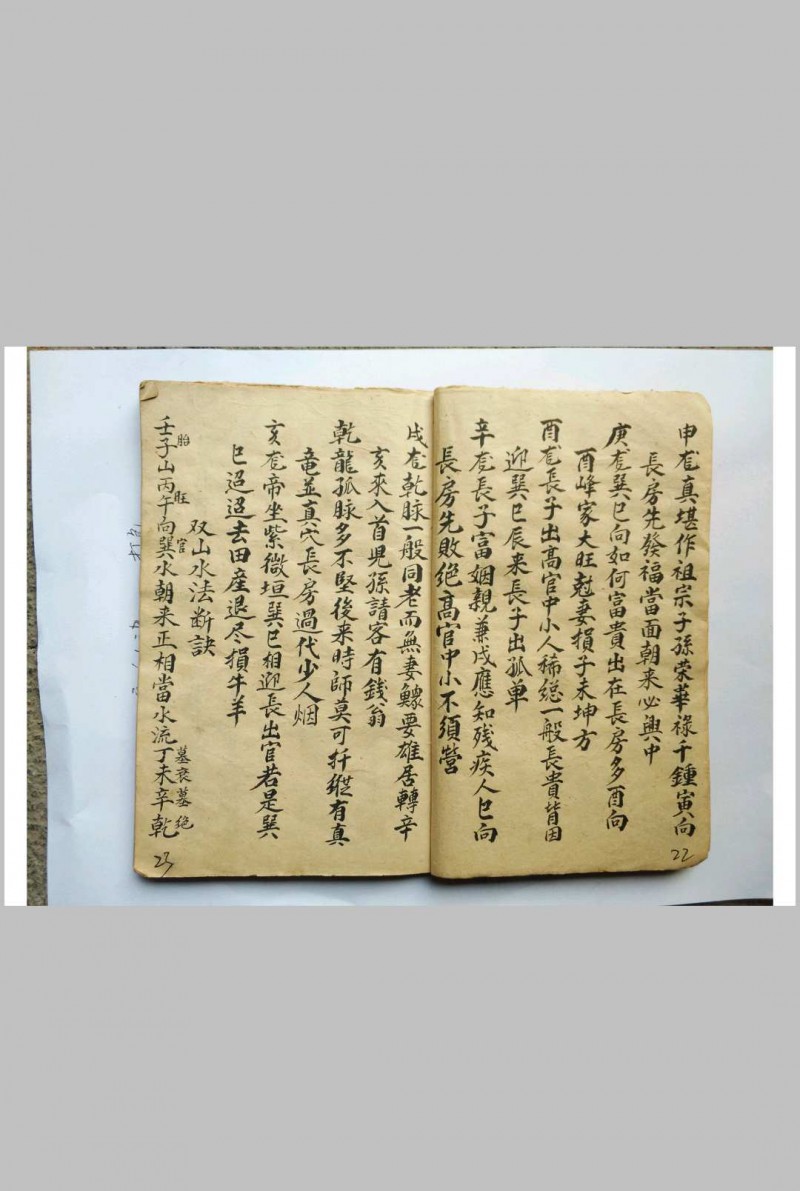 申龙真堪作祖宗子孫荣華祿千鍾寅向
長房先發福當面朝来必興中
庚龙巽巳向如何富貴出在長房多酉向
酉峰家大旺尅妻損子未坤方
酉龙長子出高官中小人稀総一般長貴皆因
迎巽巳辰来長子出孤单
辛龙長子富姻親兼戌應知残疾人巳向
長房先敗絶高官中小不須營
22
戌龙乾脉一般同老而無妻鰥要雄居轉辛
亥來入首児孫請客有錢翁
乾龍孤脉多不堅後来時師莫可扦縦有真
竜並真穴長房過代少人烟
亥龙帝坐紫微垣巽巳相迎長出官若是巽
巳迢迢去田産退尽損牛羊
双山水法断訣
壬子山丙午向巽水朝来正相當水流丁未辛乾
胎 旺 官 墓衰墓绝
23